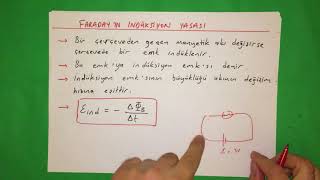 FARADAY'IN İNDÜKSİYON YASASI
→ Bir çerçeveden geçen manyetik akı değişirse
çerçevede bir emk indüklenir.
→ Bu emk'ya indüksiyon emk'sı denir
→ İndüksiyon emk'sının büyüklüğü akının değişim
hızına eşittir.
→ Ɛind = - ΔΦB / Δt